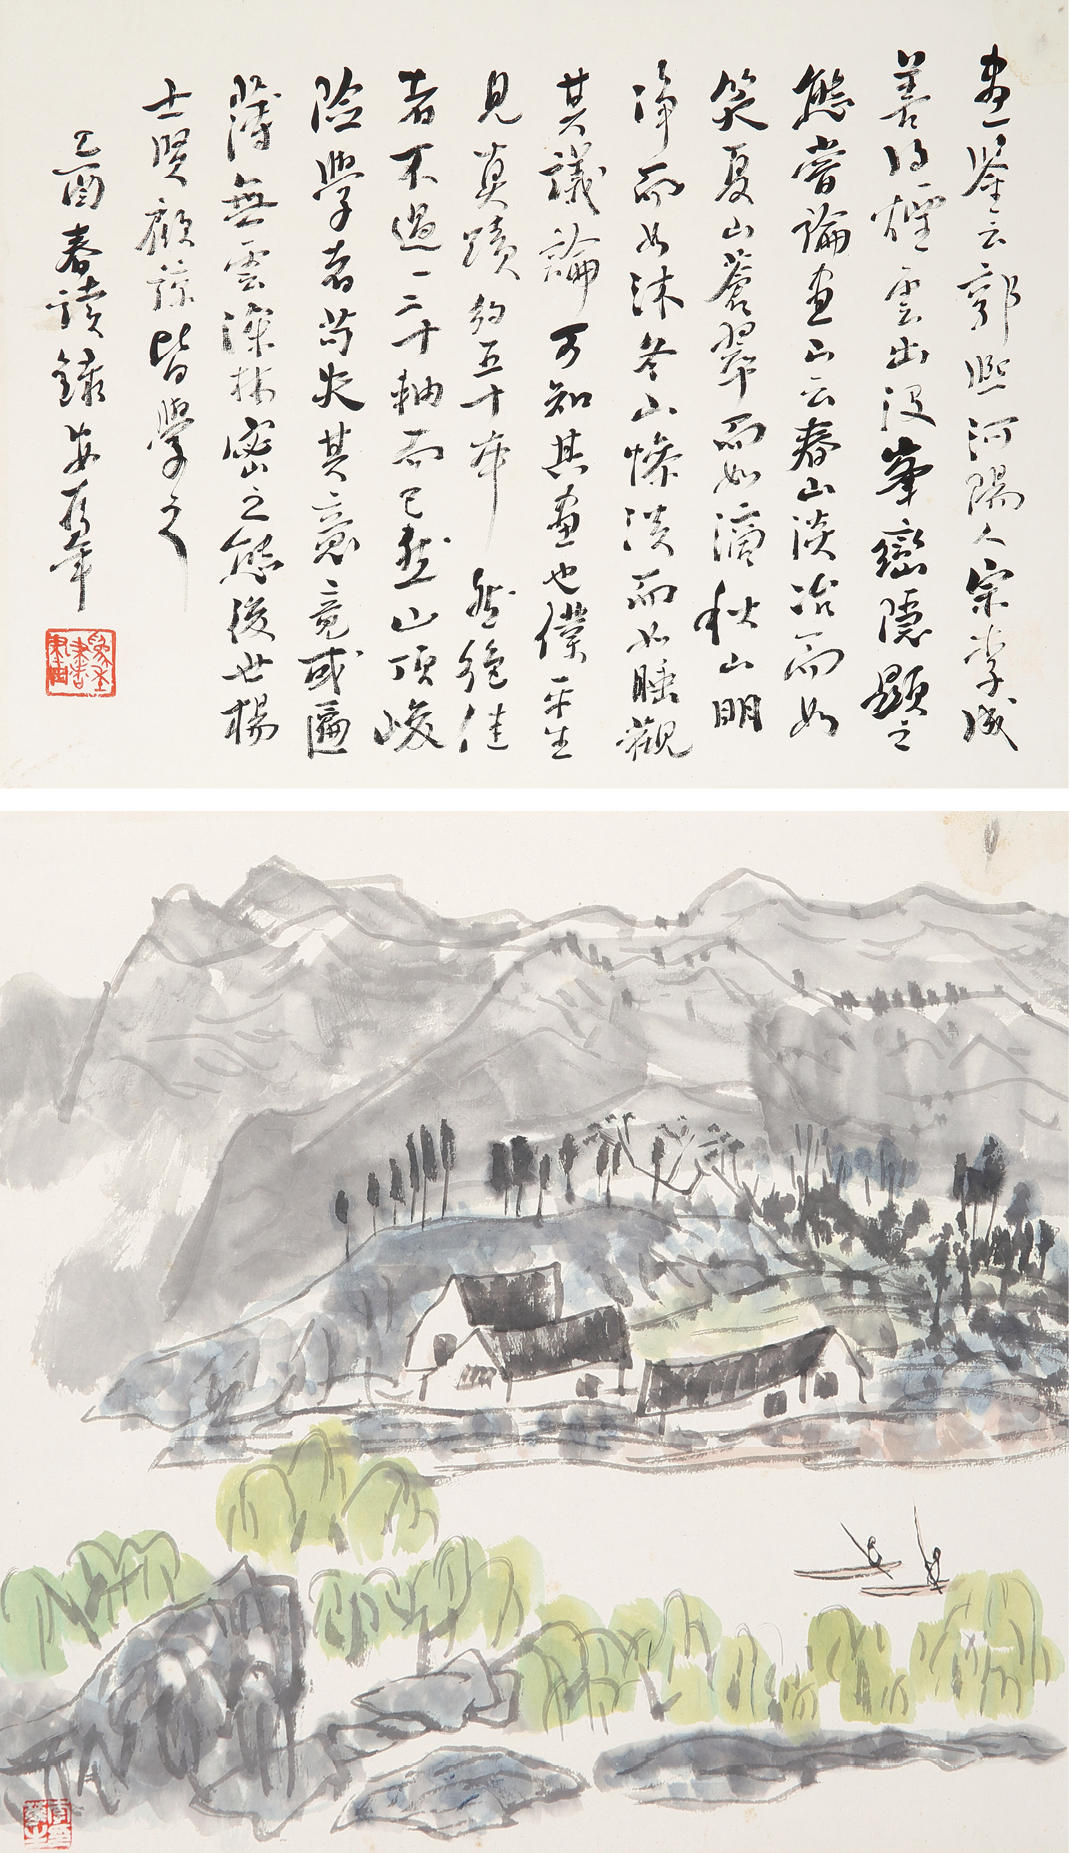 畫鑒云郭熙河陽人宗李成
善得煙雲出沒峯巒隱顯之
態嘗論畫山云春山淡冶而如
笑夏山蒼翠而如滴秋山明
淨而如沐冬山慘淡而如睡觀
其議論可知其畫也僕平生
見真蹟約五十本然絕佳
者不過一二十軸而已然山頂峻
險學者尚失其意竟或匾
薄無雲深林密之態後世楊
士賢顧諒皆學之
乙酉春讀錄